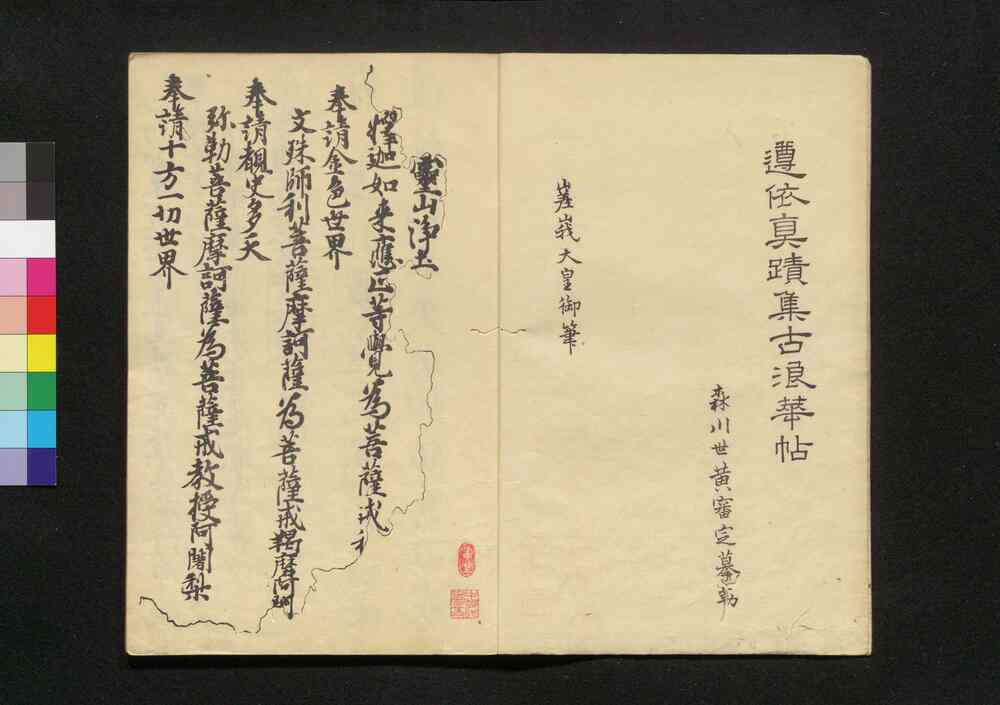 遵依真蹟集古浪華帖
森川世黄審定摹勒
嵯峨天皇御筆
靈山浄土
釋迦如来應正等覺為菩薩戒
奉請金色世界
文殊師利菩薩摩訶薩為菩薩戒羯磨阿
奉請覩史多天
弥勒菩薩摩訶薩為菩薩戒教授阿闍梨
奉請十方一切世界